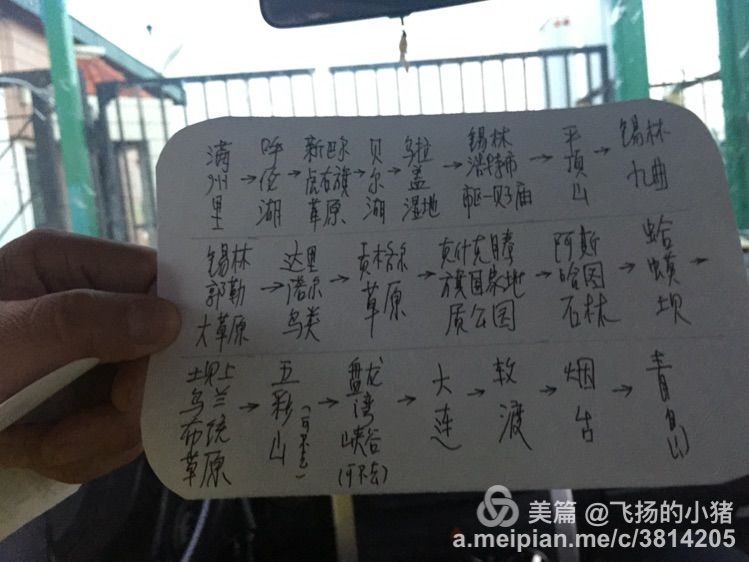 满州里→呼伦湖→新巴尔虎右旗草原→贝尔湖→乌拉盖湿地→锡林浩特市市区—贝子庙→平顶山→锡林九曲
锡林郭勒大草原→达里诺尔鸟类→贡格尔草原→克什克腾旗国家地质公园→阿斯哈图石林→蛤蟆坝→
坝上乌兰布统草原→五彩山(可不去)→盘龙湾峡谷(可不去)→大连→轮渡→烟台→青岛
美篇 @飞扬的小猪
a.meipian.me/c/3814205